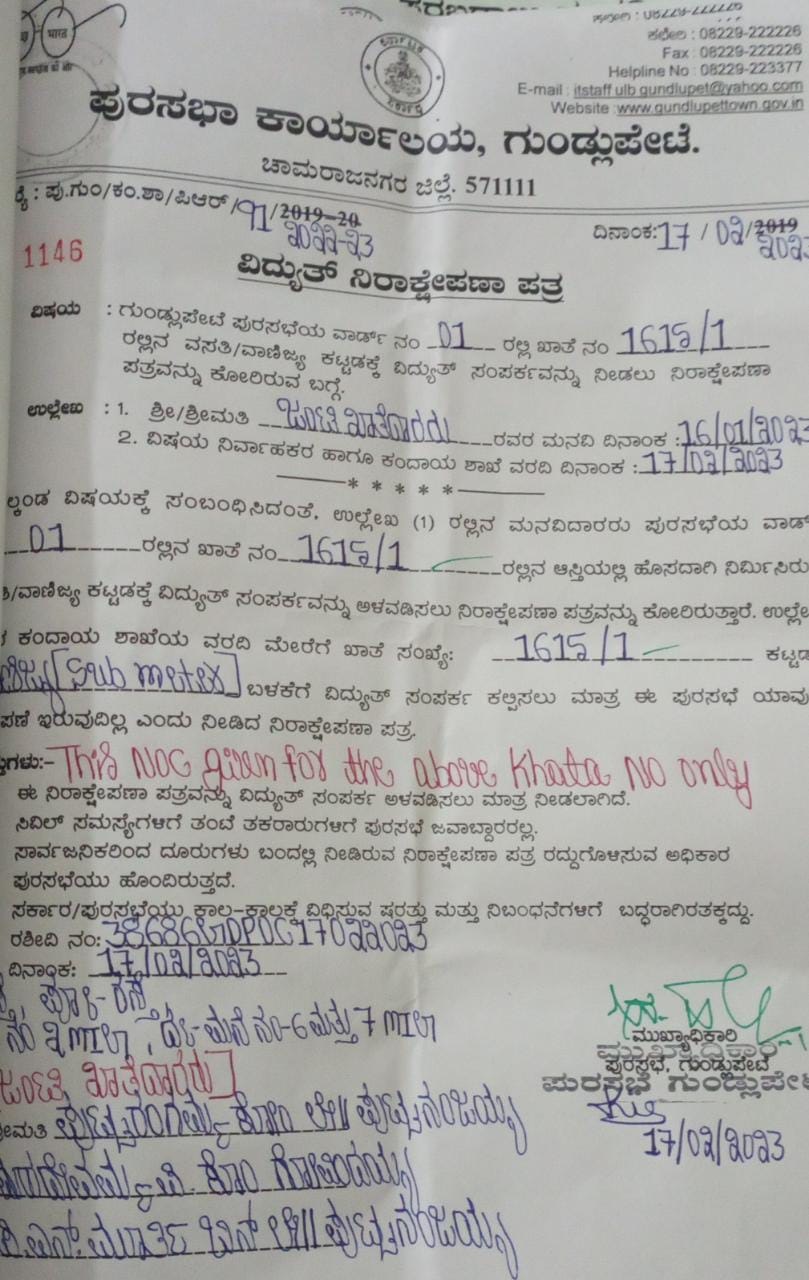 भारत
ಫೋನ : 08229-222226
Fax : 08229-222226
Helpline No : 08229-223377
E-mail : itstaff ulb gundlupet@yahoo.com
Website :www.gundlupettown.gov.in
ಪುರಸಭಾ ಕಾರ್ಯಾಲಯ, ಗುಂಡ್ಲುಪೇಟೆ.
ಚಾಮರಾಜನಗರ ಜಿಲ್ಲೆ. 571111
ಪು.ಗುಂ/ಕಂ.ಶಾ/ಪಿಆರ್/91/2019-20 ೨೦೨೨-೨3
ದಿನಾಂಕ:17 / 0೨/2019 ೨0೨3
1146
ವಿದ್ಯುತ್ ನಿರಾಕ್ಷೇಪಣಾ ಪತ್ರ
ವಿಷಯ : ಗುಂಡ್ಲುಪೇಟೆ ಪುರಸಭೆಯ ವಾರ್ಡ್ ನಂ 01 ರಲ್ಲಿ ಖಾತೆ ನಂ 1615/1
ರಲ್ಲಿನ ವಸತಿ/ವಾಣಿಜ್ಯ ಕಟ್ಟಡಕ್ಕೆ ವಿದ್ಯುತ್ ಸಂಪರ್ಕವನ್ನು ನೀಡಲು ನಿರಾಕ್ಷೇಪಣಾ
ಪತ್ರವನ್ನು ಕೋರಿರುವ ಬಗ್ಗೆ.
ಉಲ್ಲೇಖ : 1. ಶ್ರೀ/ಶ್ರೀಮತಿ ಜಂಟಿ ಖಾತೆದಾರರು ರವರ ಮನವಿ ದಿನಾಂಕ :16/01/೨0೨3
2. ವಿಷಯ ನಿರ್ವಾಹಕರ ಹಾಗೂ ಕಂದಾಯ ಶಾಖೆ ವರದಿ ದಿನಾಂಕ :17/0೨/೨0೨3
* * * * *
ಲ್ಕಂಡ ವಿಷಯಕ್ಕೆ ಸಂಬಂಧಿಸಿದಂತೆ, ಉಲ್ಲೇಖ (1) ರಲ್ಲಿನ ಮನವಿದಾರರು ಪುರಸಭೆಯ ವಾರ್ಡ್
01 ರಲ್ಲಿನ ಖಾತೆ ನಂ 1615/1 ರಲ್ಲಿನ ಆಸ್ತಿಯಲ್ಲಿ ಹೊಸದಾಗಿ ನಿರ್ಮಿಸಿರು
/ವಾಣಿಜ್ಯ ಕಟ್ಟಡಕ್ಕೆ ವಿದ್ಯುತ್ ಸಂಪರ್ಕವನ್ನು ಅಳವಡಿಸಲು ನಿರಾಕ್ಷೇಪಣಾ ಪತ್ರವನ್ನು ಕೋರಿರುತ್ತಾರೆ. ಉಲ್ಲೇ
ಕಂದಾಯ ಶಾಖೆಯ ವರದಿ ಮೇರೆಗೆ ಖಾತೆ ಸಂಖ್ಯೆ: 1615/1 ಕಟ್ಟಡ
[Sub meter] ಬಳಕೆಗೆ ವಿದ್ಯುತ್ ಸಂಪರ್ಕ ಕಲ್ಪಿಸಲು ಮಾತ್ರ ಈ ಪುರಸಭೆ ಯಾವು
ಪಣೆ ಇರುವುದಿಲ್ಲ ಎಂದು ನೀಡಿದ ನಿರಾಕ್ಷೇಪಣಾ ಪತ್ರ.
ತುಗಳು:- This NOC given for the above Khata No only
ಈ ನಿರಾಕ್ಷೇಪಣಾ ಪತ್ರವನ್ನು ವಿದ್ಯುತ್ ಸಂಪರ್ಕ ಅಳವಡಿಸಲು ಮಾತ್ರ ನೀಡಲಾಗಿದೆ.
ಸಿವಿಲ್ ಸಮಸ್ಯೆಗಳಿಗೆ ತಂಟೆ ತಕರಾರುಗಳಿಗೆ ಪುರಸಭೆ ಜವಾಬ್ದಾರರಲ್ಲ.
ಸಾರ್ವಜನಿಕರಿಂದ ದೂರುಗಳು ಬಂದಲ್ಲಿ ನೀಡಿರುವ ನಿರಾಕ್ಷೇಪಣಾ ಪತ್ರ ರದ್ದುಗೊಳಿಸುವ ಅಧಿಕಾರ
ಪುರಸಭೆಯು ಹೊಂದಿರುತ್ತದೆ.
ಸರ್ಕಾರ/ಪುರಸಭೆಯು ಕಾಲ-ಕಾಲಕ್ಕೆ ವಿಧಿಸುವ ಷರತ್ತು ಮತ್ತು ನಿಬಂಧನೆಗಳಿಗೆ ಬದ್ಧರಾಗಿರತಕ್ಕದ್ದು.
ರಶೀದಿ ನಂ:
ದಿನಾಂಕ: 17/0೨/೨0೨3
ನಂ-6 ಮತ್ತು 7
ಮುಖ್ಯಾಧಿಕಾರಿ
ಮುಖ್ಯಾಧಿಕಾರಿ
ಪುರಸಭೆ, ಗುಂಡ್ಲುಪೇಟೆ
ಪುರಸಭೆ ಗುಂಡ್ಲುಪೇಟೆ
17/0೨/೨0೨3
ಜಂಟಿ ಖಾತೆದಾರರು]